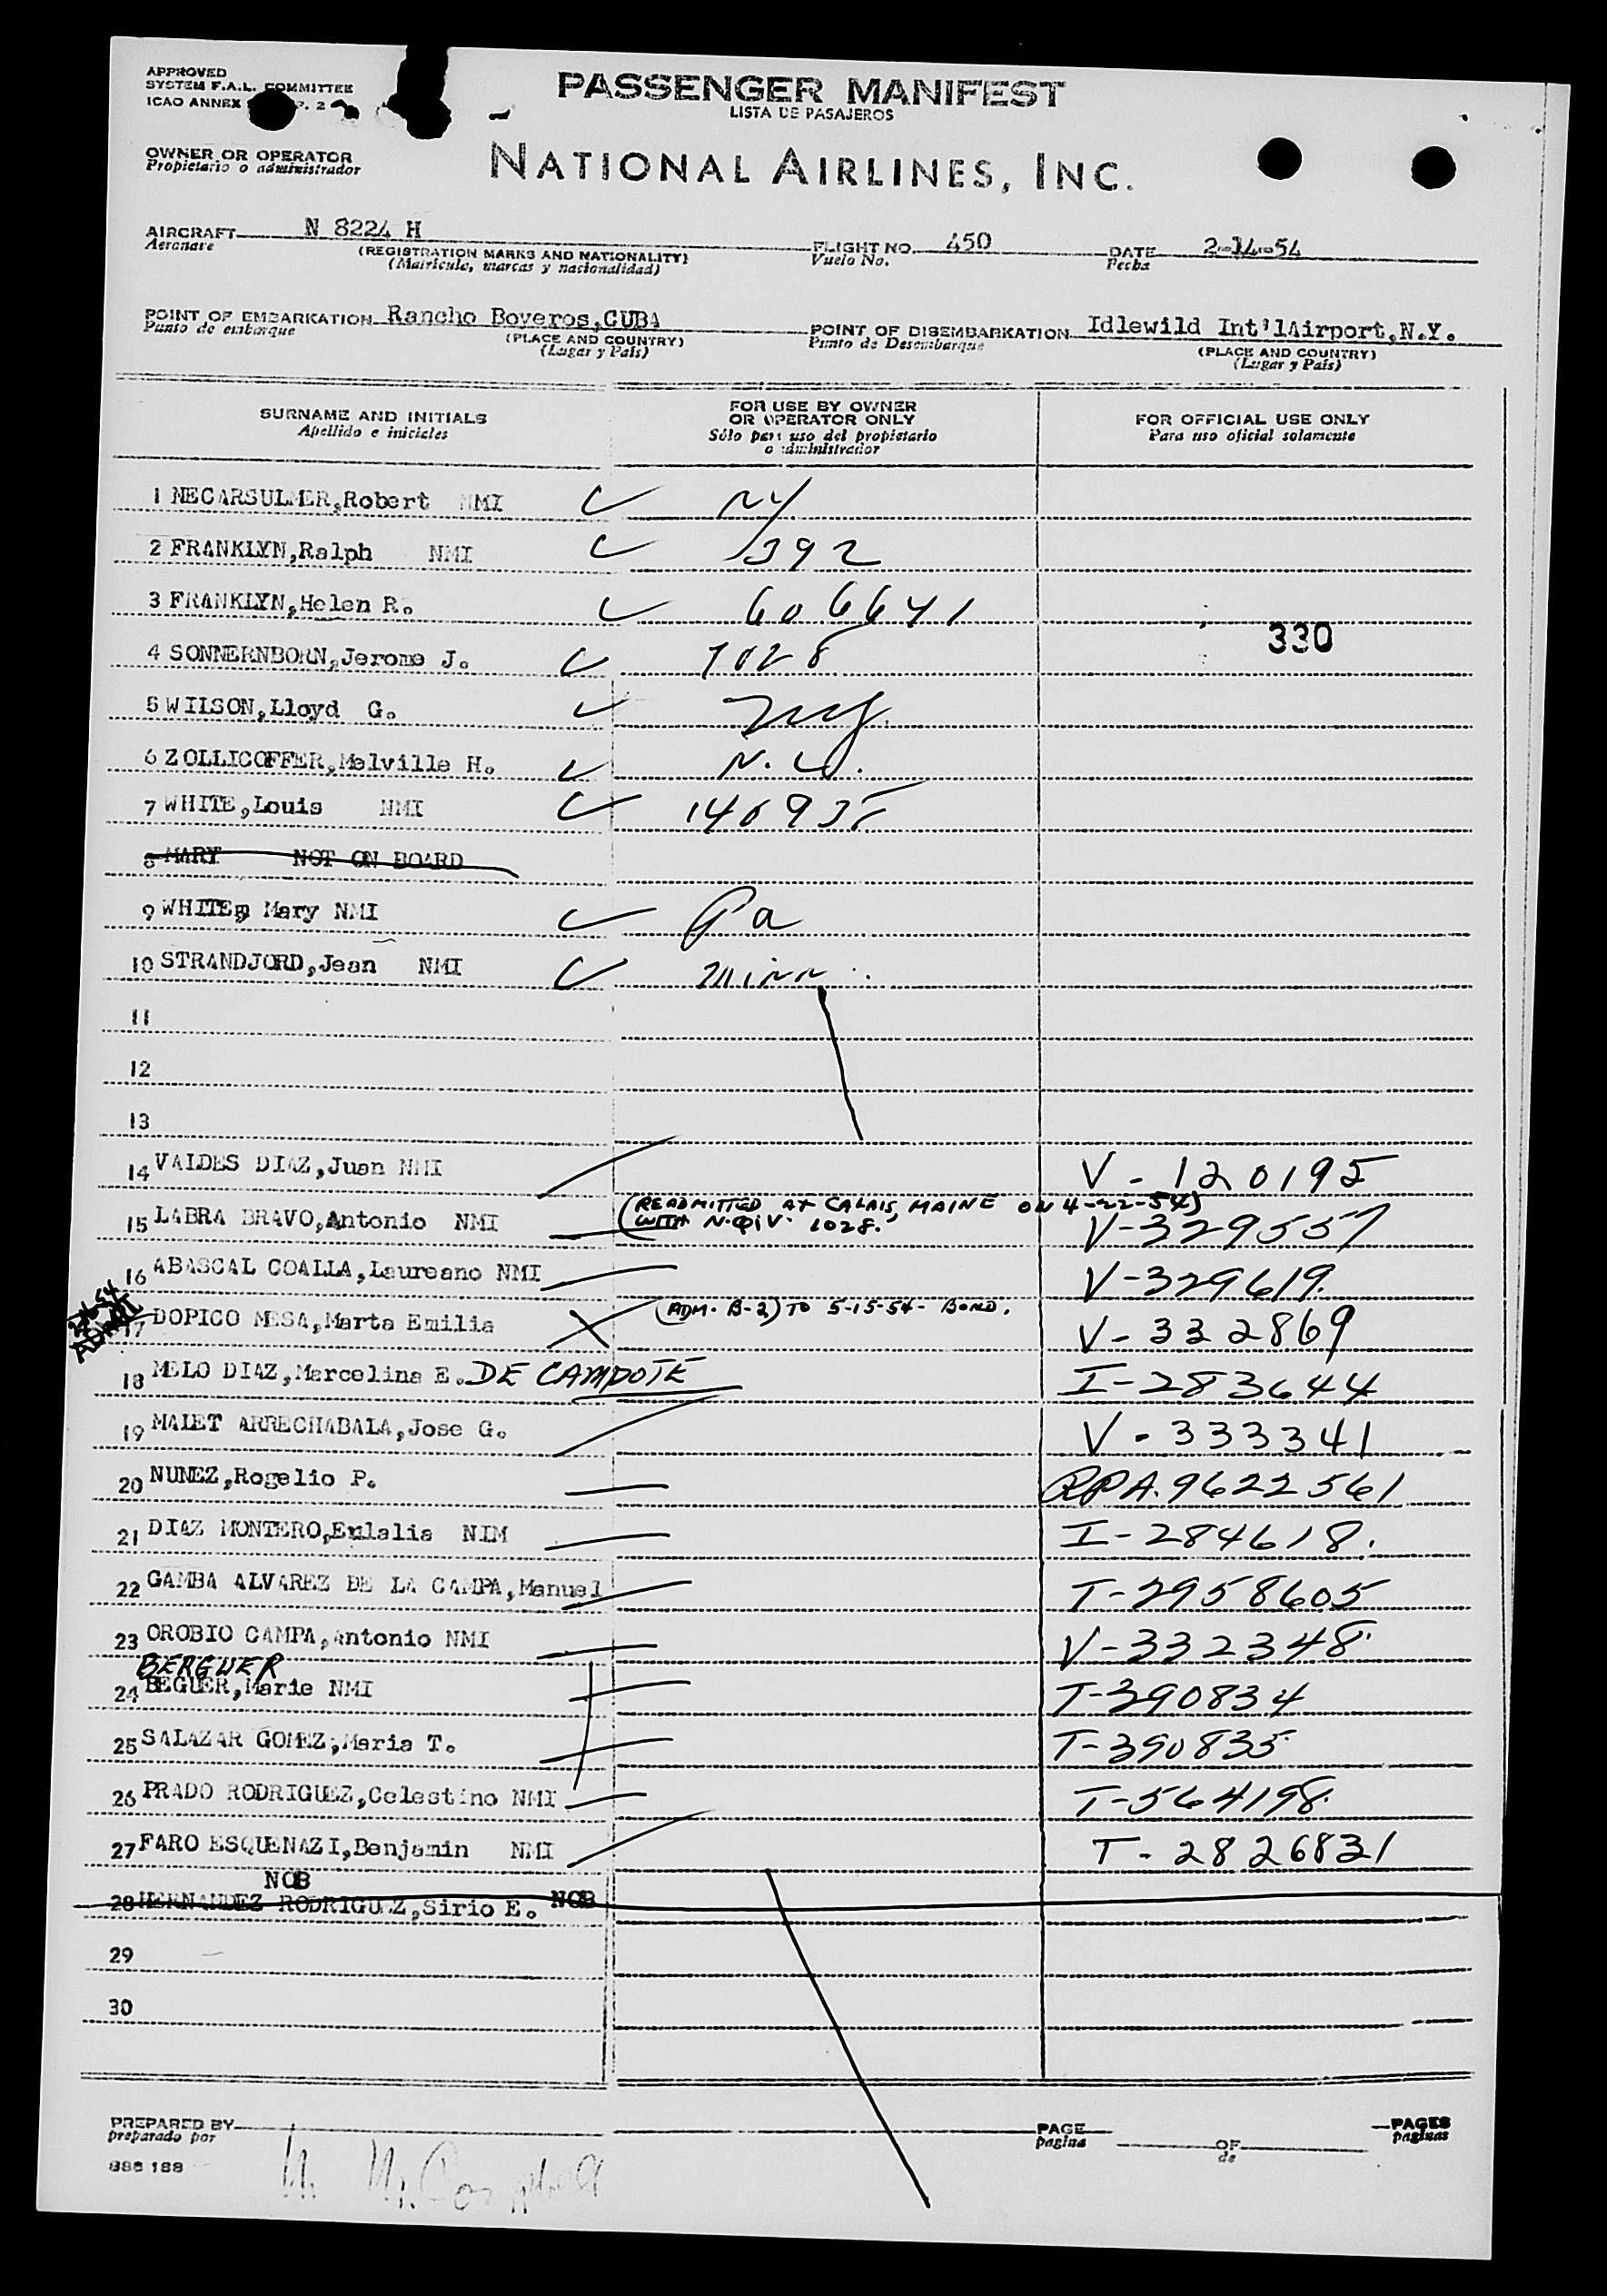 APPROVED
SYSTEM F.A.L. COMMITTEE
ICAO ANNEX
PASSENGER MANIFEST
LISTA DE PASAJEROS
OWNER OR OPERATOR
Propietario o administrador
NATIONAL AIRLINES, INC.
AIRCRAFT N 8224 H FLIGHT NO. 450 DATE 2-14-54
Aeronave (REGISTRATION MARKS AND NATIONALITY) Vuelo No. Fecha
(Matricula, marcas y nacionalidad)
POINT OF EMBARKATION Rancho Boyeros,CUBA POINT OF DISEMBARKATION Idlewild Int'lAirport,N.Y.
Punto de embarque (PLACE AND COUNTRY) Punto de Desembarque (PLACE AND COUNTRY)
(Lugar y País) (Lugar y País)
SURNAME AND INITIALS FOR USE BY OWNER OR OPERATOR ONLY FOR OFFICIAL USE ONLY
Apellido e iniciales Sólo para uso del propietario o administrador Para uso oficial solamente
1 NECARSULMER,Robert NMI NY
2 FRANKLYN,Ralph NMI 392
3 FRANKLYN,Helen R. 606641
330
4 SONNERNBORN,Jerome J. 1028
5 WILSON,Lloyd G.
6 ZOLLICOFFER,Melville H.
7 WHITE,Louis NMI 140935
8 MARY NOT ON BOARD
9 WHITE, Mary NMI Pa
10 STRANDJORD,Jean NMI Minn
11
12
13
14 VALDES DIAZ,Juan NMI V-120195
15 LABRA BRAVO,Antonio NMI (READMITTED AT CALAIS, MAINE ON 4-22-54) V-329557
WITH 1028.
16 ABASCAL COALLA,Laureano NMI V-329619.
17 DOPICO MESA,Marta Emilia (ADM. B-2) TO 5-15-54- BOND. V-332869
18 MELO DIAZ,Marcelina E. DE CAMPOTE I-283644
19 MALET ARRECHABALA,Jose G. V-333341
20 NUNEZ,Rogelio P. RPA.9622561
21 DIAZ MONTERO,Eulalia NIM I-284618.
22 GAMBA ALVAREZ DE LA CAMPA,Manuel T-2958605
23 OROBIO CAMPA,Antonio NMI V-332348.
BERGUER
24 BEGUER,Marie NMI T-390834
25 SALAZAR GOMEZ,Maria T. T-390835
26 PRADO RODRIGUEZ,Celestino NMI T-564198.
27 FARO ESQUENAZI,Benjamin NMI T-2826831
NOB
28 HERNANDEZ RODRIGUEZ,Sirio E. NOB
29
30
PREPARED BY PAGE OF PAGES
preparado por pagina de paginas